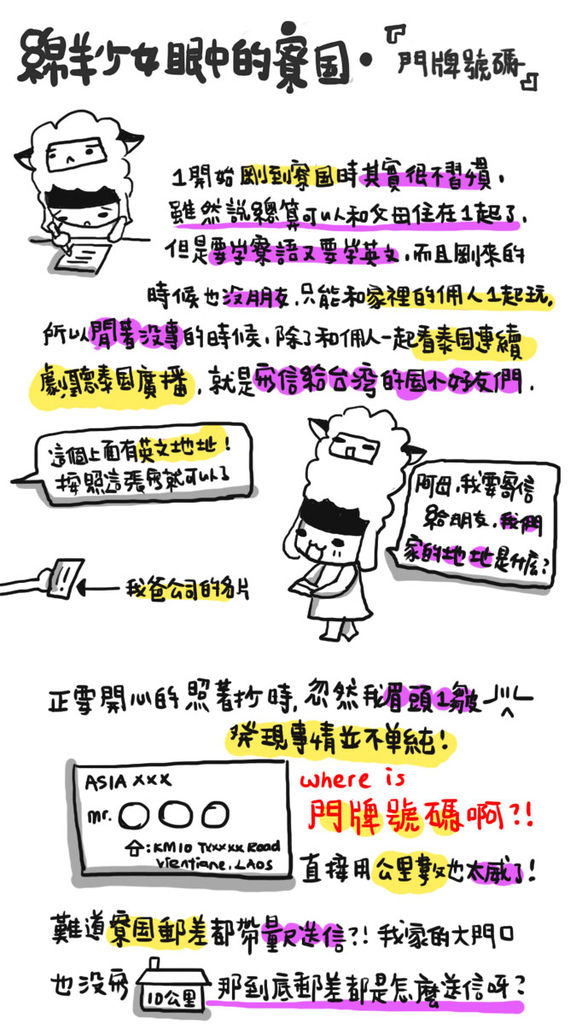 綿羊少女眼中的寮国・『門牌號碼』
1開始剛到寮国時其實很不習慣,
雖然說總算可以和父母住在1起了,
但是要学寮語又要学英文,而且剛來的
時候也沒朋友,只能和家裡的佣人1起玩,
所以閒著沒事的時候,除了和佣人一起看泰国連續
劇聽泰国廣播,就是寫信給台湾的国小好友們.
這個上面有英文地址!
按照這張寫就可以了
阿母,我要寄信
給朋友,我們
家的地址是什麼?
我爸公司的名片
正要開心的照著抄時,忽然我眉頭1皺
發現事情並不单純!
ASIA XXX
mr. ○○○
合:KM10 TXXXXX Road
Vientiane, LAOS
where is
門牌號碼啊?!
直接用公里數也太威了!
難道寮国郵差都帶量尺送信?!我家的大門口
也沒寫
10公里
那到底郵差都是怎麼送信呀?